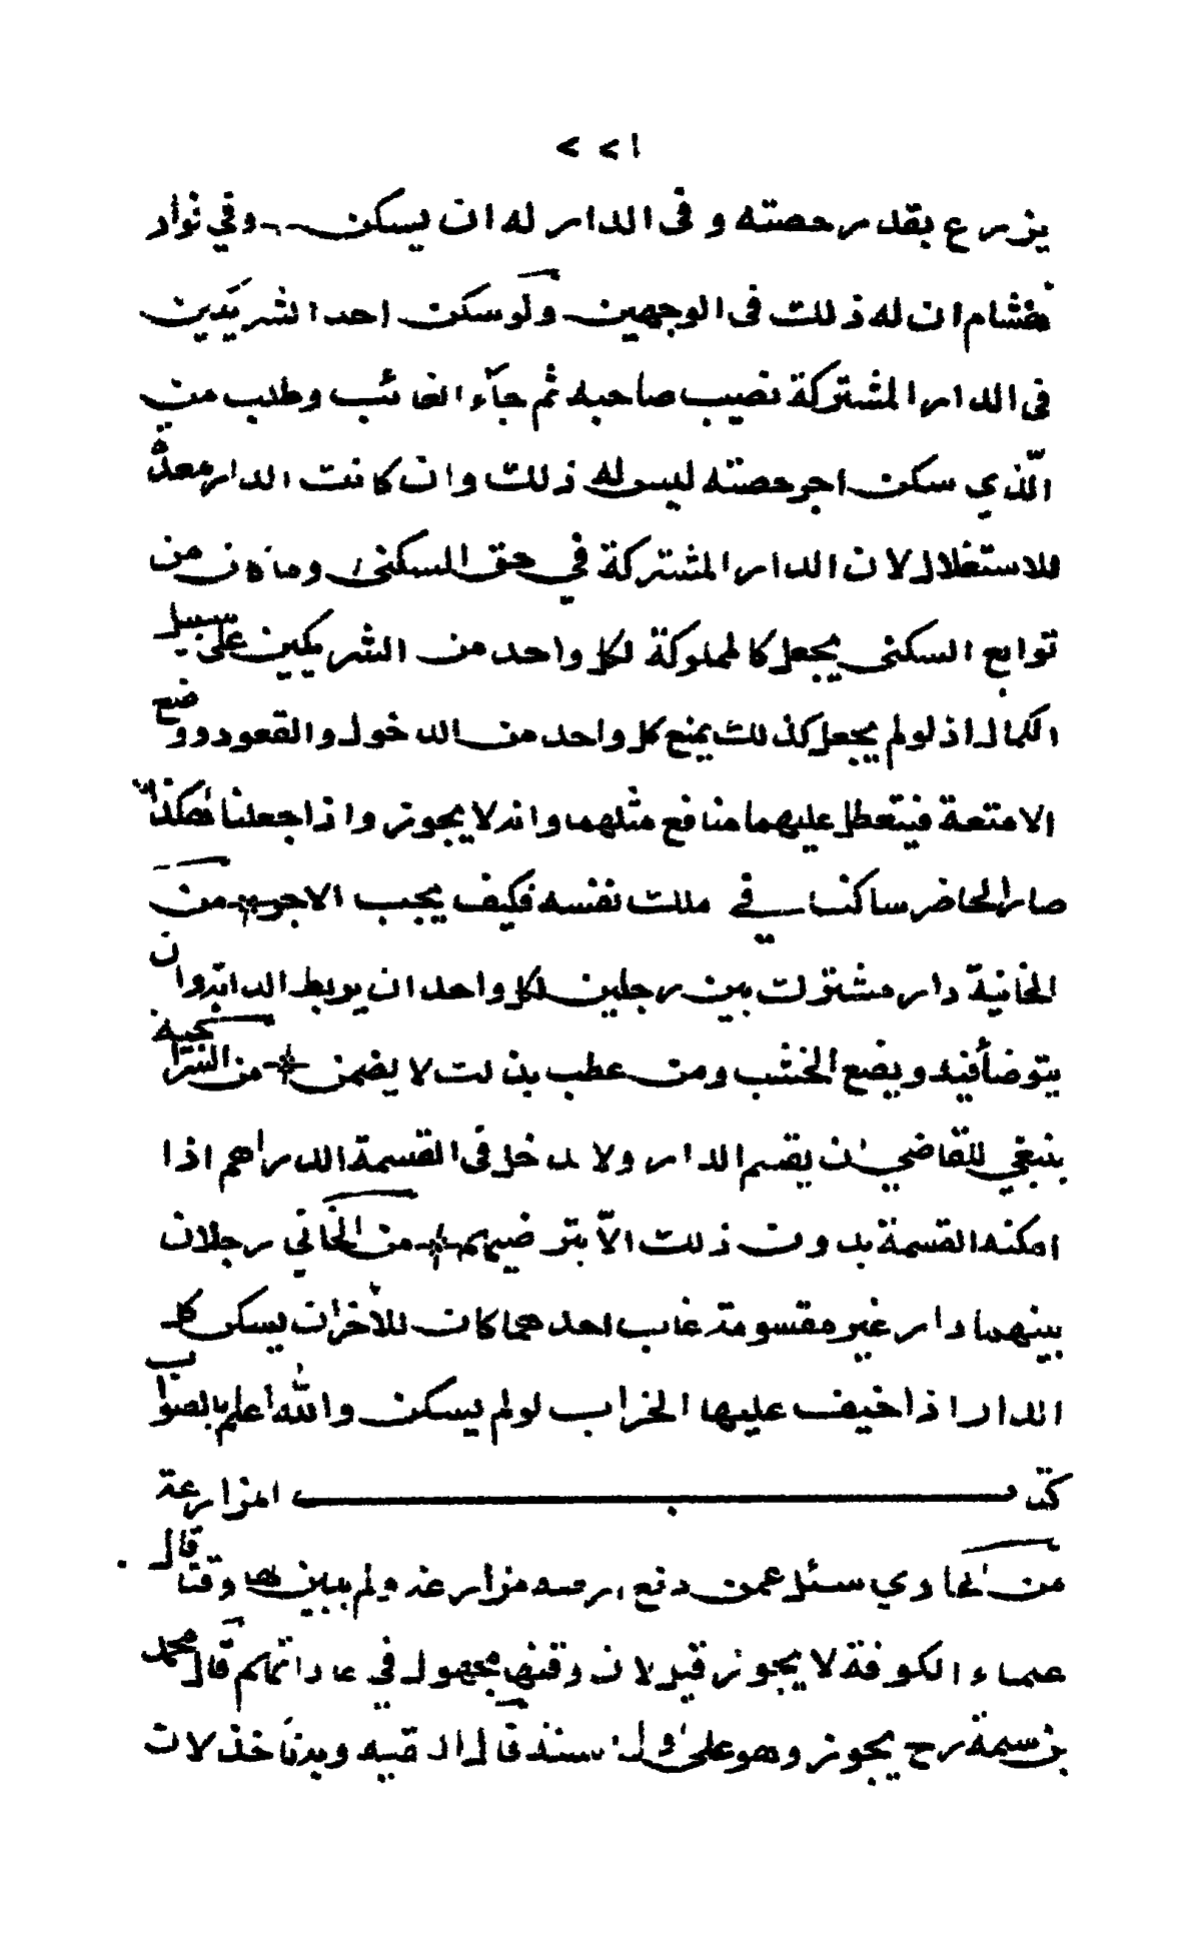 ١٢٢
يزرع بقدر حصته وفى الدار له ان يسكن وفي نوادر
هشام ان له ذلك فى الوجهين ولو سكن احد الشريكين
فى الدار المشتركة نصيب صاحبه ثم جآء الغائب وطلب من
الّذي سكن اجر حصته ليس له ذلك وان كانت الدار معدّة
للاستغلال لان الدار المشتركة في حق السكنى وما كان من
توابع السكنى يجعل كالمملوكة لكل واحد من الشريكين على سبيل
الكمال اذ لو لم يجعل كذلك يمنع كل واحد من الدخول والقعود ووضع
الامتعة فيتعطل عليهما منافع مثلهما وانه لا يجوز واذا جعلنا هكذا
صار الحاضر ساكنا في ملك نفسه فكيف يجب الاجر من
الخانية دار مشترك بين رجلين لكل واحد ان يربط الدابة وان
يتوضأ فيه ويضع الخشب ومن عطب بذلك لا يضمن من السراجية
ينبغي للقاضي ان يقسم الدار ولا يدخل فى القسمة الدراهم اذا
امكنه القسمة بدون ذلك الاّ بتراضيهم من الخاني رجلان
بينهما دار غير مقسومة غاب احدهما كان للآخر ان يسكن كل
الدار اذا خيف عليها الخراب لو لم يسكن والله اعلم بالصواب
كتاب المزارعة
من الحاوي سئل عمن دفع ارضه مزارعة ولم يبين لها وقتا قال
علماء الكوفة لا يجوز قيل لان وقتها مجهول في عاداتهم قال محمد
بن سلمة رح يجوز وهو على اول سنة قال الفقيه وبه ناخذ لان